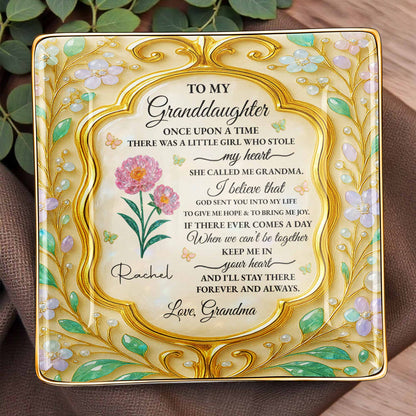 TO MY
Granddaughter
ONCE UPON A TIME
THERE WAS A LITTLE GIRL WHO STOLE
my heart
SHE CALLED ME GRANDMA.
I believe that
GOD SENT YOU INTO MY LIFE
TO GIVE ME HOPE & TO BRING ME JOY.
IF THERE EVER COMES A DAY
When we can't be together
KEEP ME IN
your heart
AND I'LL STAY THERE
FOREVER AND ALWAYS.
Love, Grandma
Rachel